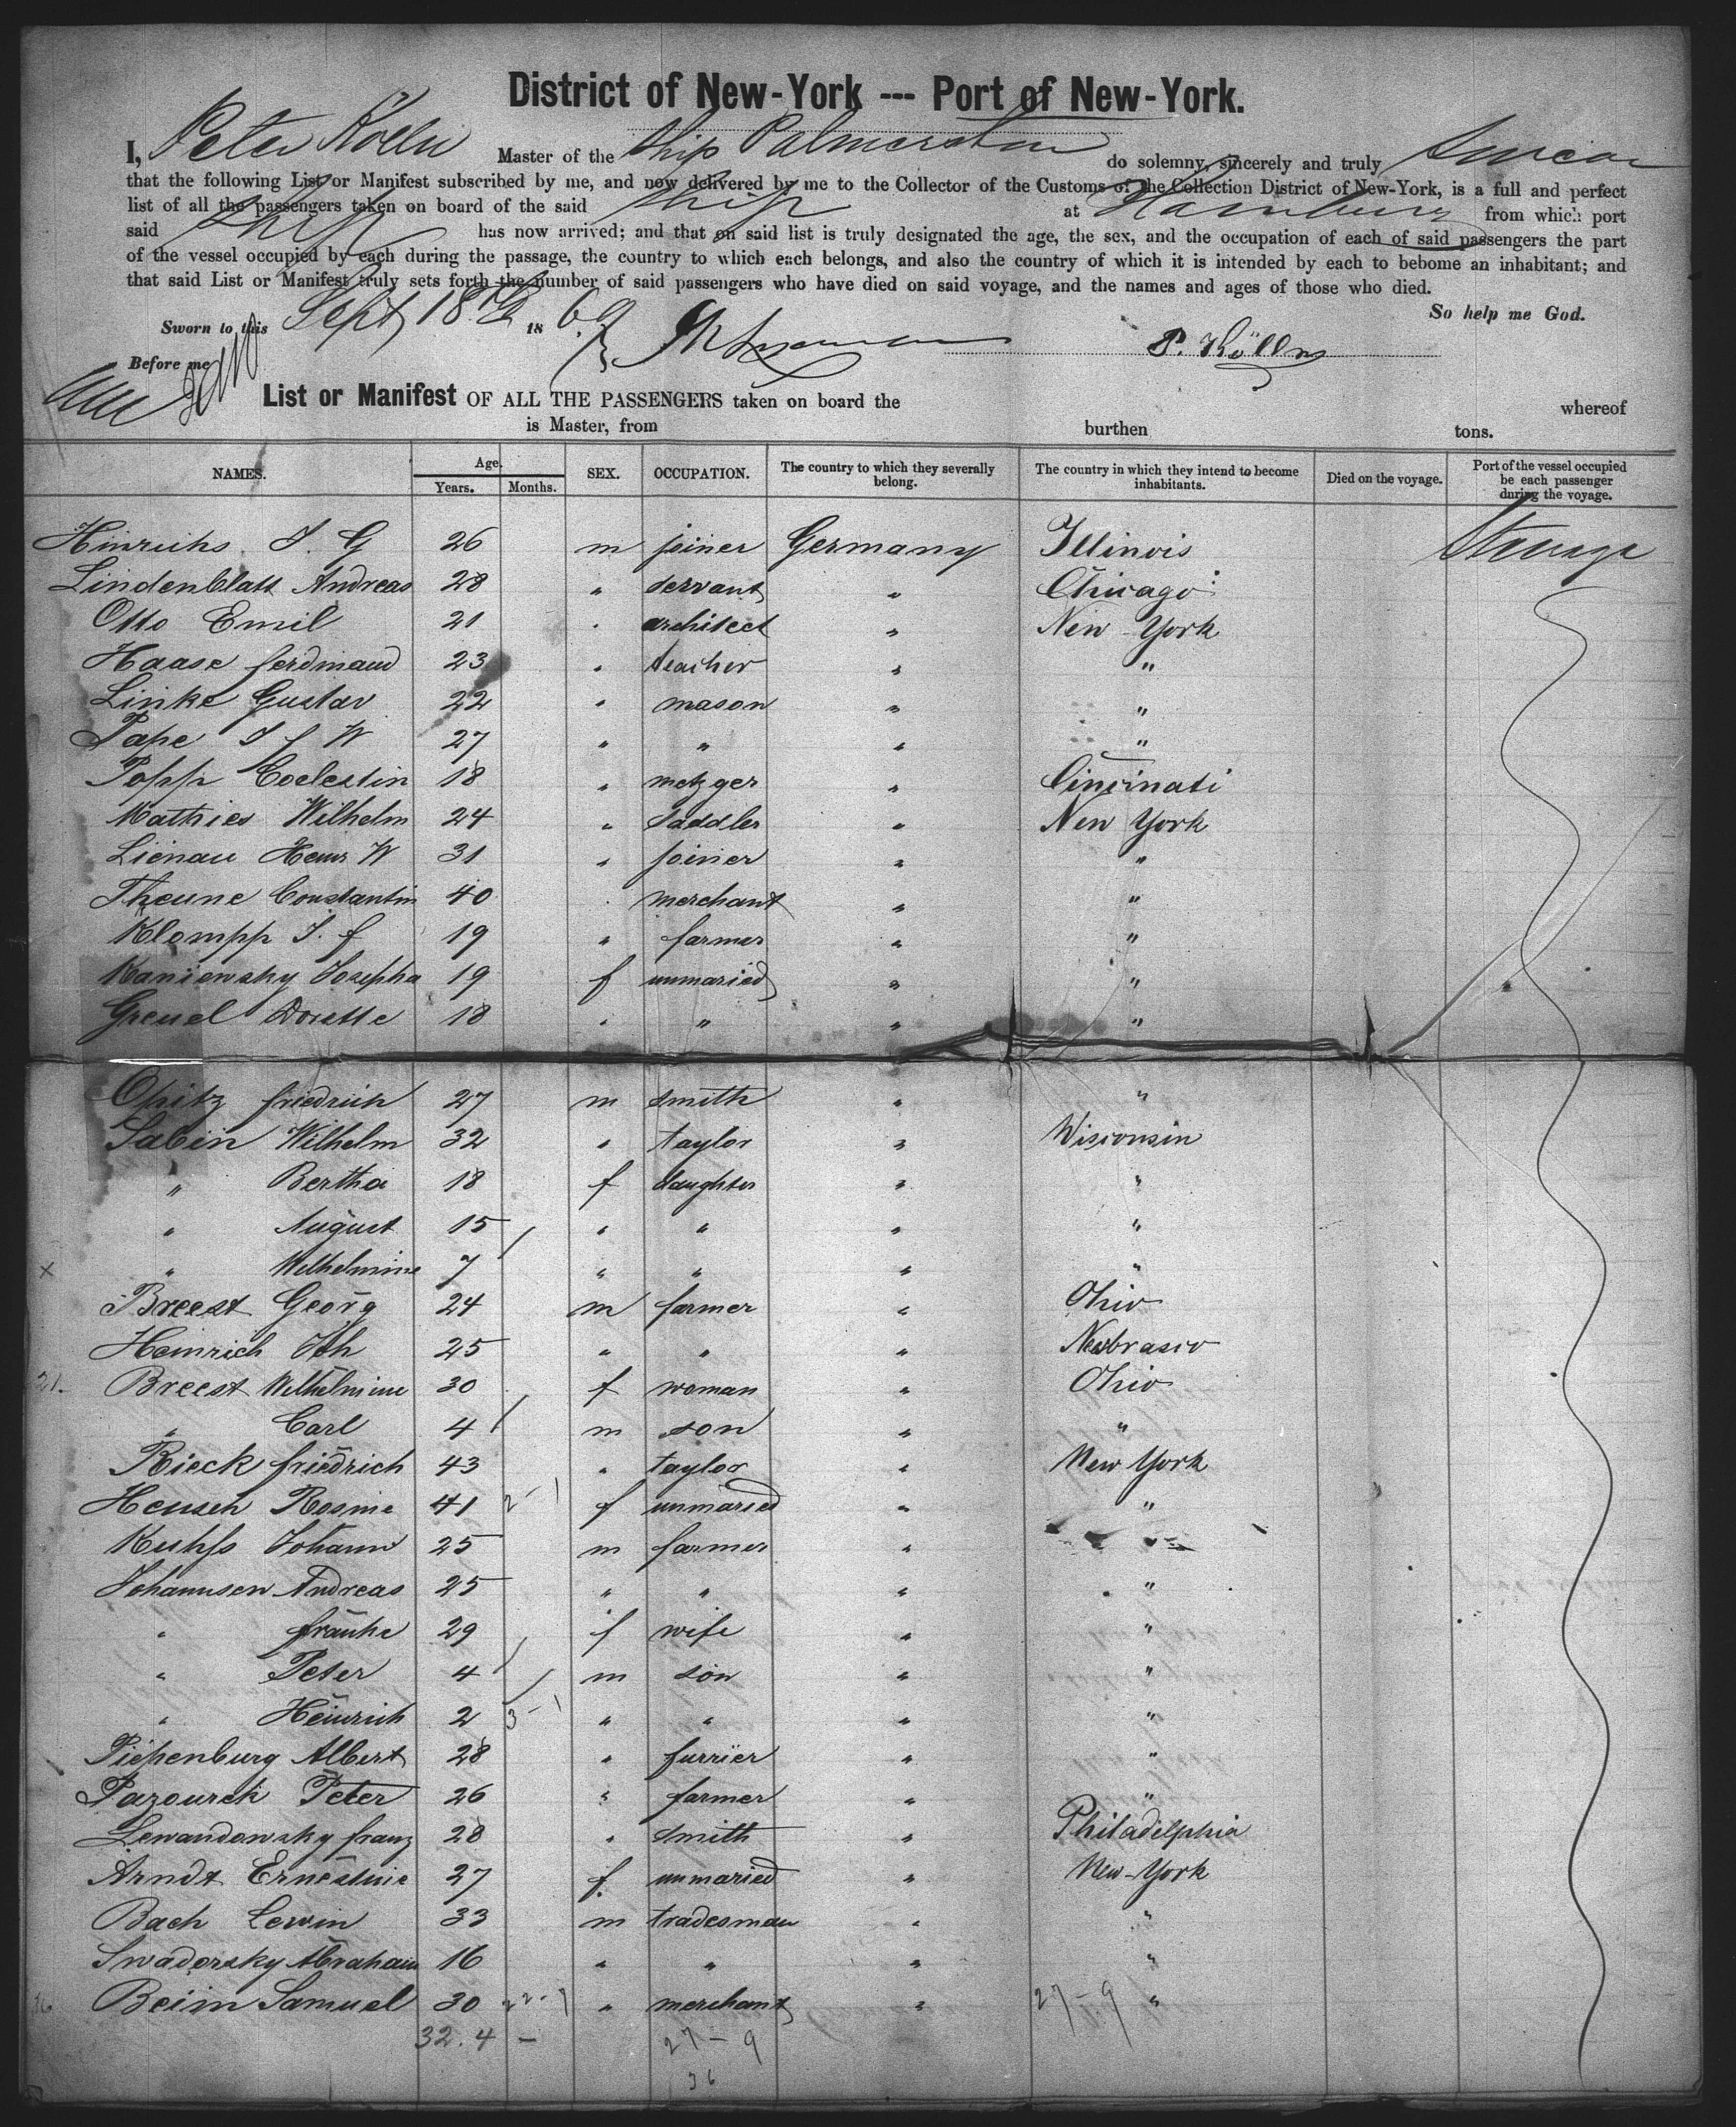 District of New-York --- Port of New-York.
I, Peter Kölln Master of the ship Palmerston do solemny, sincerely and truly Swear
that the following List or Manifest subscribed by me, and now delivered by me to the Collector of the Customs of the Collection District of New-York, is a full and perfect
list of all the passengers taken on board of the said ship at Hamburg from which port
said ship has now arrived; and that on said list is truly designated the age, the sex, and the occupation of each of said passengers the part
of the vessel occupied by each during the passage, the country to which each belongs, and also the country of which it is intended by each to bebome an inhabitant; and
that said List or Manifest truly sets forth the number of said passengers who have died on said voyage, and the names and ages of those who died.
So help me God.
Sworn to this Sept 18th 1869
P. Kölln
Before me
List or Manifest OF ALL THE PASSENGERS taken on board the whereof
is Master, from burthen tons.
NAMES. Age. Years. Months. SEX. OCCUPATION. The country to which they severally belong. The country in which they intend to become inhabitants. Died on the voyage. Port of the vessel occupied be each passenger during the voyage.
Hinrichs J. G 26 m joiner Germany Illinois Steerage
Lindenblatt Andreas 28 " servant " Chicago
Otto Emil 21 " architect " New York
Haase ferdinand 23 " teacher " "
Linke Gustav 22 " mason " "
Pape J f W 27 " " " "
Popp Coelestin 18 " metzger " Cincinati
Mathies Wilhelm 24 " saddler " New York
Lienau Heinr W 31 " joiner " "
Theune Constantin 40 " merchant " "
Klompp J. f 19 " farmer " "
Kaniewsky Josepha 19 f unmaried " "
Greuel Dorette 18 " " " "
Opitz friedrich 27 m smith " "
Sabin Wilhelm 32 " taylor " Wisconsin
" Bertha 18 f daughter " "
" August 15 " " " "
x " Wilhelmine 7 " " " "
Breest Georg 24 m farmer " Ohio
Heinrich Joh 25 " " "
21. Breest Wilhelmine 30 f woman " Ohio
" Carl 4 m son " "
Rieck friedrich 43 " taylor " New York
Hensch Rosine 41 f unmaried " "
Johann 25 m farmer " "
Johannsen Andreas 25 " " " "
" frauke 29 f wife " "
" Peter 4 m son " "
" Heinrich 2 " " " "
Piepenburg Albert 28 " furrier " "
Pazourek Peter 26 " farmer " "
Lewandowsky franz 28 " smith " Philadelphia
Arndt Ernestine 27 f. unmaried " New-York
Bach Lewin 33 m tradesman " "
Swadorsky Abraham 16 " " " "
Beim Samuel 30 " merchant " 27-9 "
32.4 - 27-9
36